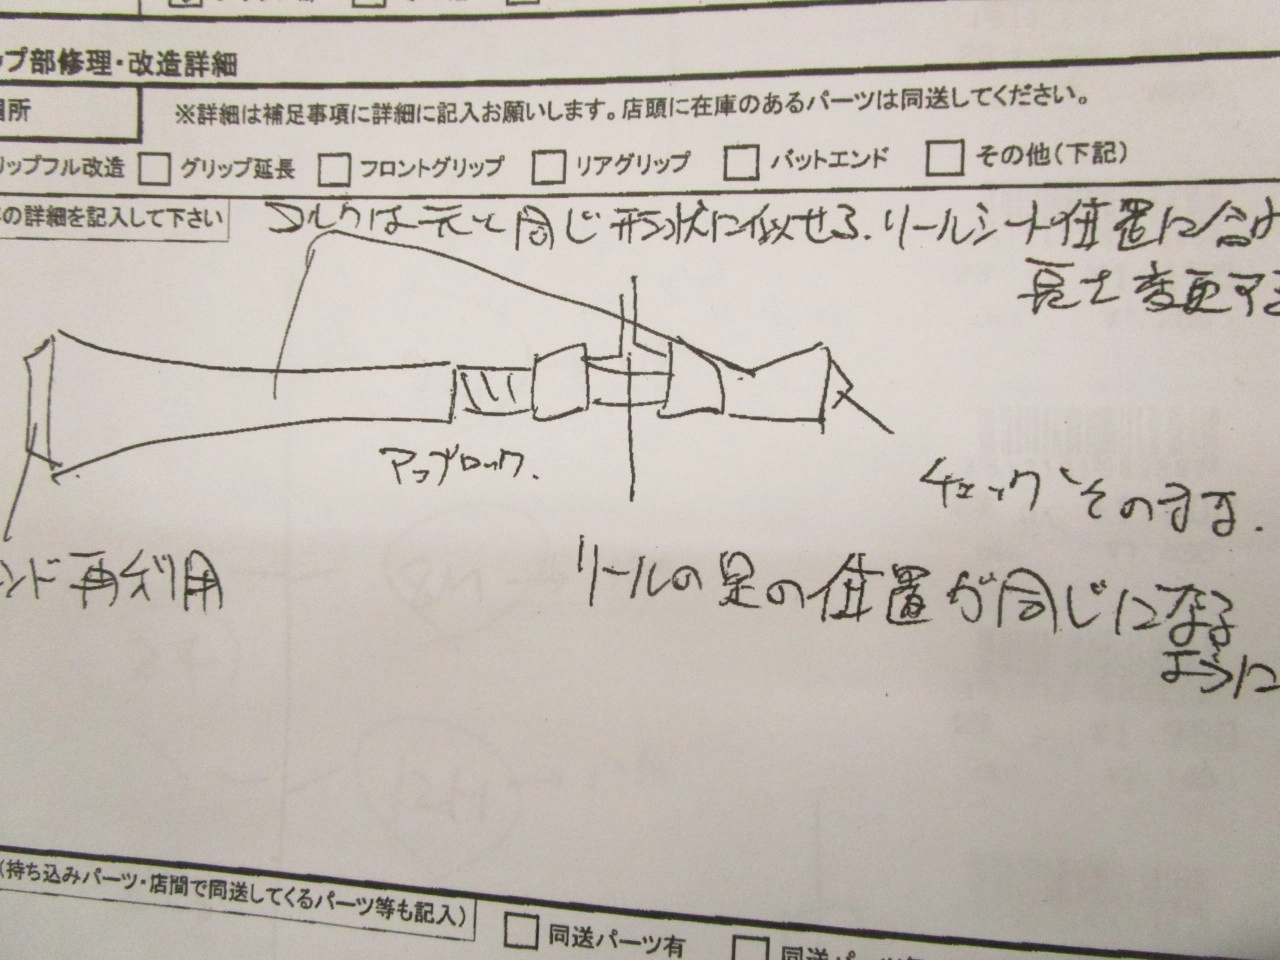 ップ部修理・改造詳細
箇所
※詳細は補足事項に詳細に記入お願いします。店頭に在庫のあるパーツは同送してください。
リップフル改造 □ グリップ延長 □ フロントグリップ □ リアグリップ □ バットエンド □ その他(下記)
の詳細を記入して下さい
コルクは元と同じ形状に似せる。リールシート位置に合わ
長さ変更する
アップロック.
チェック そのまま.
ンド再利用
リールの足の位置が同じになる
ように
(持ち込みパーツ・店間で同送してくるパーツ等も記入)
□ 同送パーツ有 □ 同送パーツ